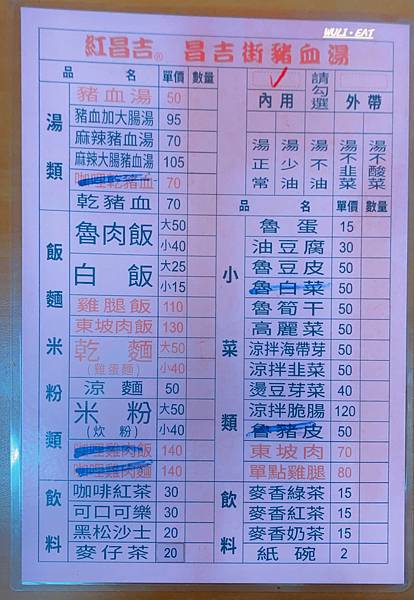 WULI·EAT
紅昌吉® 昌吉街豬血湯
品名 單價 數量
湯類
豬血湯 50
豬血加大腸湯 95
麻辣豬血湯 70
麻辣大腸豬血湯 105
咖哩乾豬血 70
乾豬血 70
飯麵米粉類
魯肉飯 大50 小40
白飯 大25 小15
雞腿飯 110
東坡肉飯 130
乾麵 (雞蛋麵) 大50 小40
涼麵 50
米粉 (炊粉) 大50 小40
咖哩雞肉飯 140
咖哩雞肉麵 140
飲料
咖啡紅茶 30
可口可樂 30
黑松沙士 20
麥仔茶 20
內用 請勾選 外帶
湯正常 湯少油 湯不油 湯不韭菜 湯不酸菜
品名 單價 數量
小菜類
魯蛋 15
油豆腐 30
魯豆皮 50
魯白菜 50
魯筍干 50
高麗菜 50
涼拌海帶芽 50
涼拌韭菜 50
燙豆芽菜 40
涼拌脆腸 120
魯豬皮 50
東坡肉 70
單點雞腿 80
飲料
麥香綠茶 15
麥香紅茶 15
麥香奶茶 15
紙碗 2